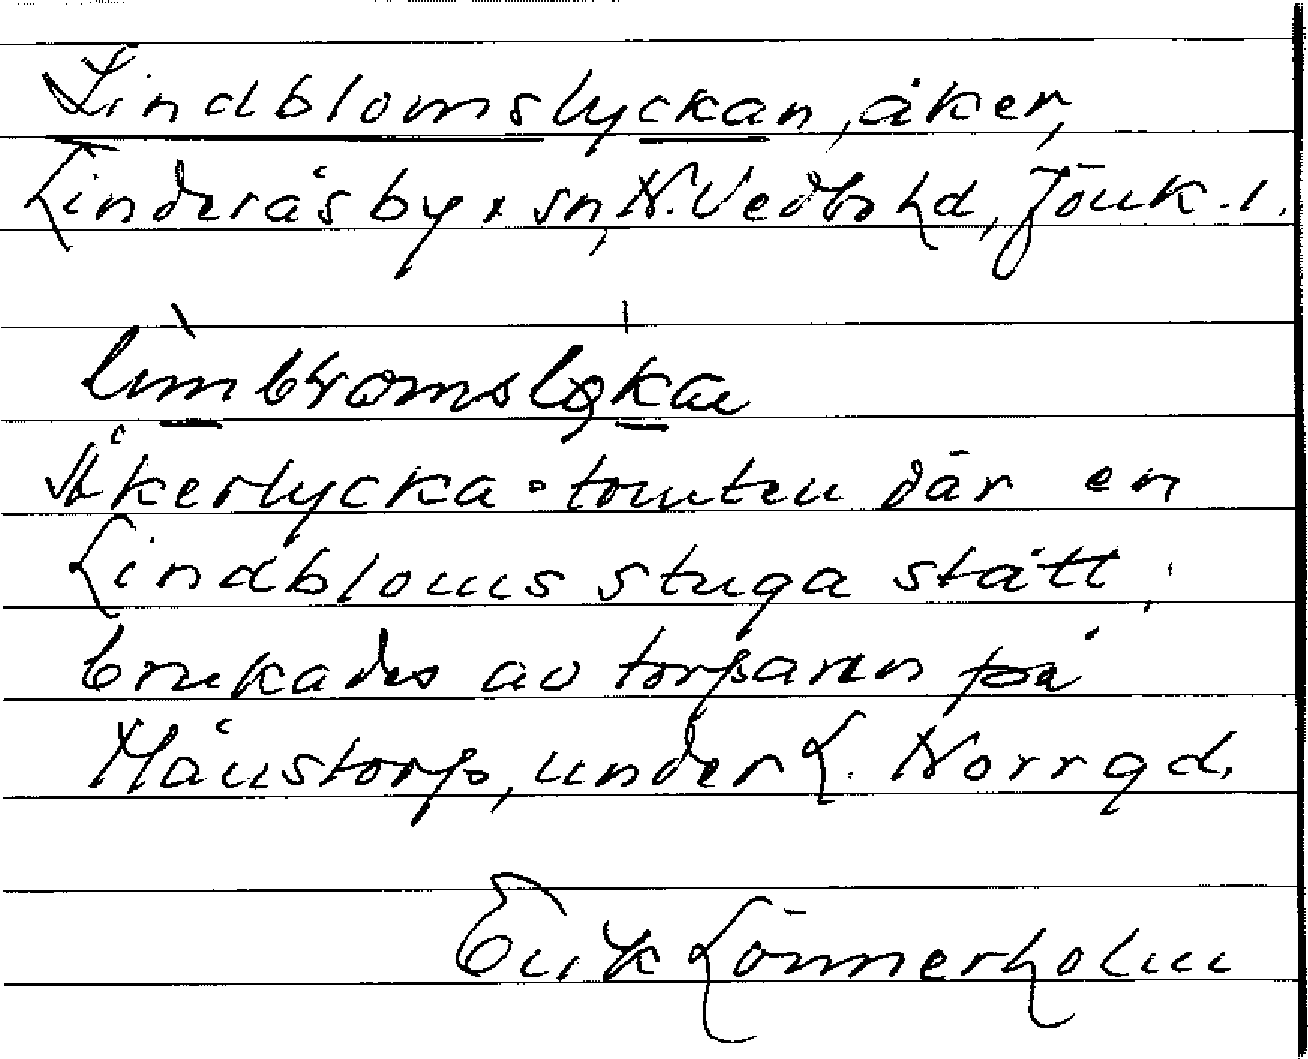 Lindblomslyckan, åker,
Linderås by & sn, N. Vedbo hd, Jönk. l.
Åkerlycka - tomten där en
Lindbloms stuga stått,
brukades av torparen på
Månstorp, under L. Norrgd.
Erik Lönnerholm